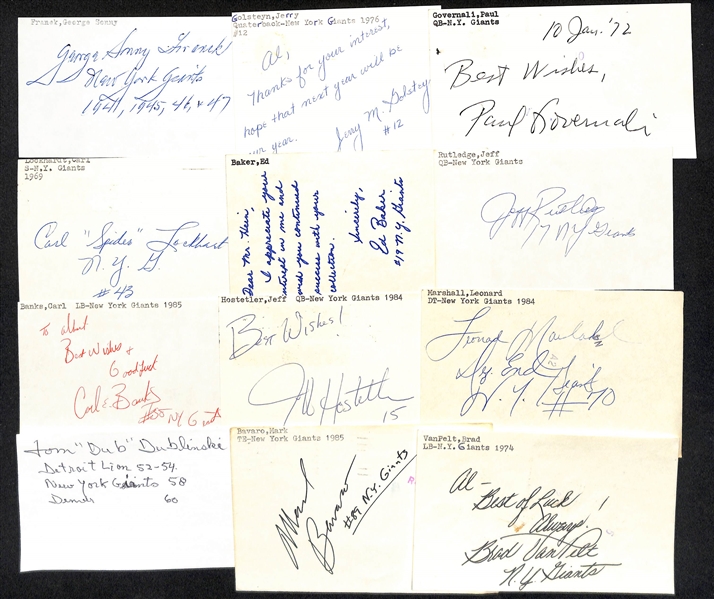 Franck, George Sonny
George Sonny Franck
New York Giants
1941, 1945, 46, + 47
Golsteyn, Jerry
Quaterback-New York Giants 1976
#12
Al,
Thanks for your interest,
hope that next year will be
our year.
Jerry M. Golsteyn
#12
Governali, Paul
QB-N.Y. Giants
10 Jan. '72
Best Wishes,
Paul Governali
Lockhardt, Carl
S-N.Y. Giants
1969
Carl "Spider" Lockhart
N.Y. G.
#43
Baker, Ed
Dear Mr. Hein,
I appreciate your
interest in me and
wish you continued
success with your
collection.
Sincerely,
Ed Baker
#17 N.Y. Giants
Rutledge, Jeff
QB-New York Giants
Jeff Rutledge
17 NY Giants
Banks, Carl LB-New York Giants 1985
To Albert
Best Wishes +
Good luck
Carl E. Banks
#58 NY Giants
Hostetler, Jeff QB-New York Giants 1984
Best Wishes!
Jeff Hostetler
15
Marshall, Leonard
DT-New York Giants 1984
Leonard Marshall
Dr. End
N.Y. Giants
#70
Tom "Dub" Dublinski
Detroit Lion 52-54
New York Giants 58
Denver 60
Bavaro, Mark
TE-New York Giants 1985
Mark
Bavaro
#89 N.Y. Giants
VanPelt, Brad
LB-N.Y. Giants 1974
Al-
Best of Luck
Always!
Brad Van Pelt
N.Y. Giants